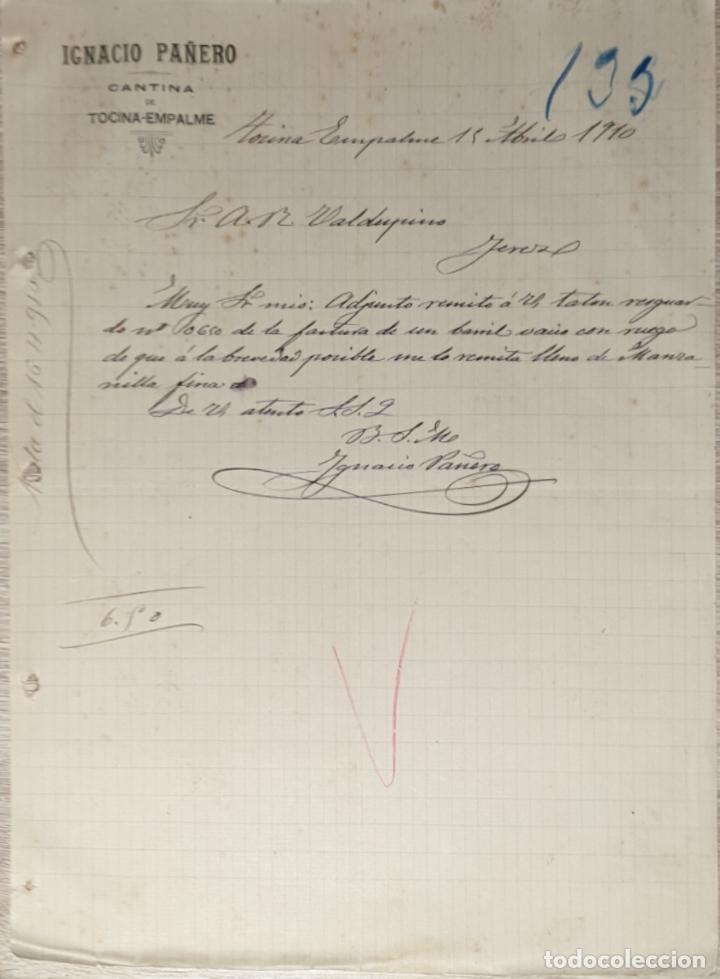 IGNACIO PAÑERO
CANTINA
DE
TOCINA-EMPALME
133
Tocina Empalme 15 Abril 1910
Sr. A. R. Valdespino
Jerez
Muy Sr mio: Adjunto remito á V. talon resguar-
do nº 10650 de la factura de un barril vacio con ruego
de que á la brevedad posible me lo remita lleno de Manza-
nilla fina
De V. atento S. S. Q
B. S. M
Ignacio Pañero
el 16 4 910
6.50
todocoleccion